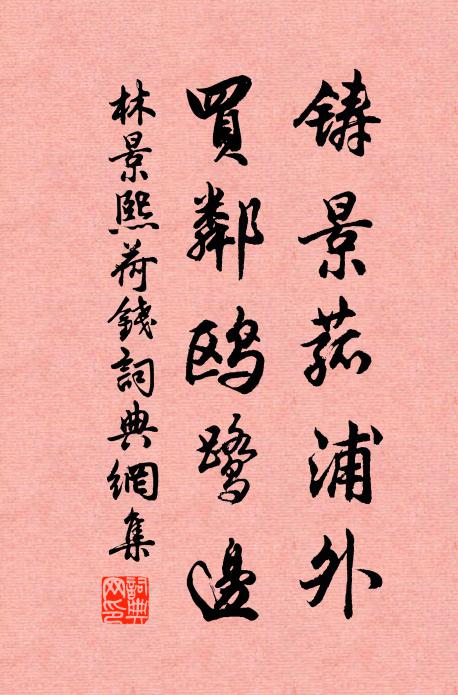 鑄景菰浦外
買鄰鷗鷺邊
林景熙荷錢詞典網集
詞典網印